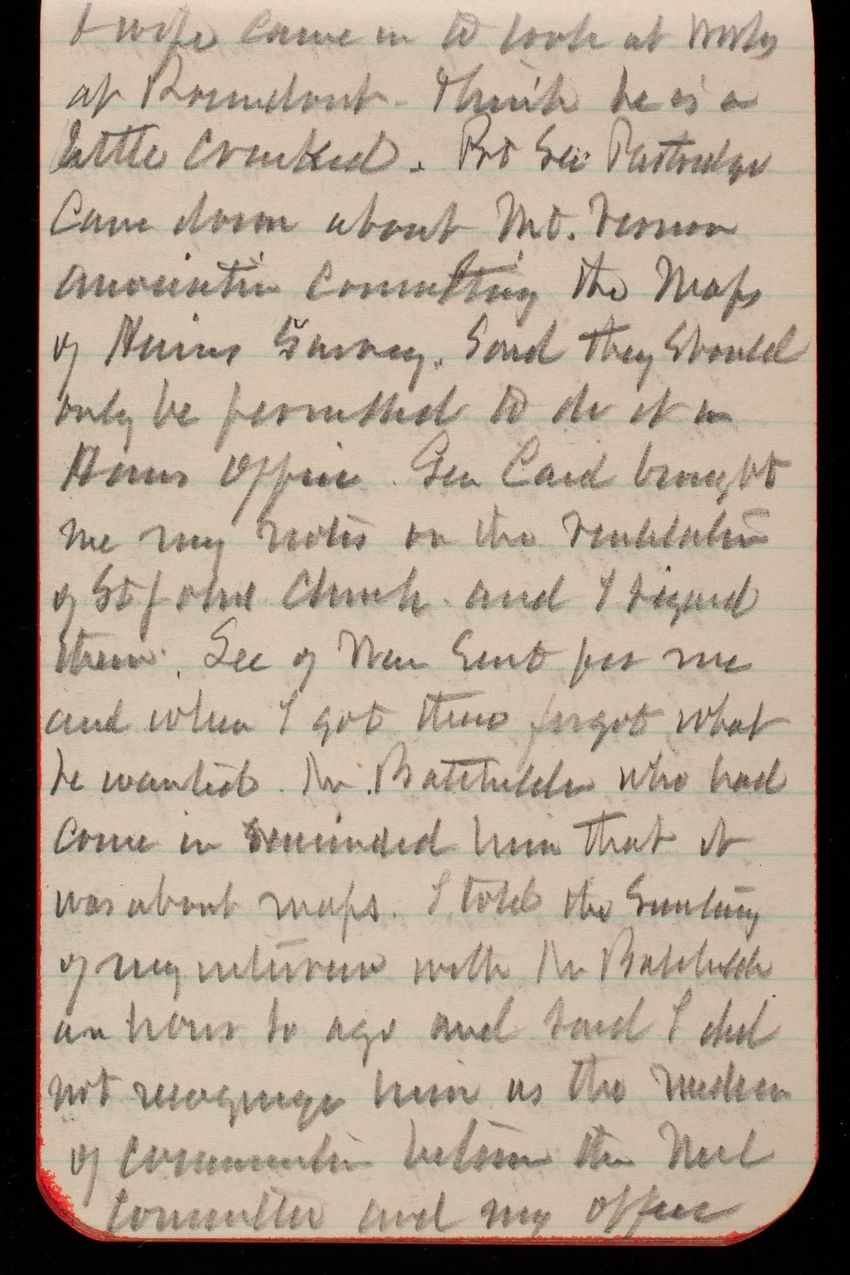 & wife came in to look at works
at Roundout. Think he is a
little cracked. Prt Sec Partridge
came down about Mt. Vernon
association consulting the maps
of Hains Survey. Said they should
only be permitted to do it in
Hains office. Gen Caid brought
me my notes on the ventilation
of St John Church and I signed
them. Sec of War sent for me
and when I got there forgot what
he wanted. Mr. Batchelder who had
come in reminded him that it
was about maps. I told the Secretary
of my interview with Mr Batchelder
an hour to ago and said I did
not recognize him as the medium
of between the
Committee and my office